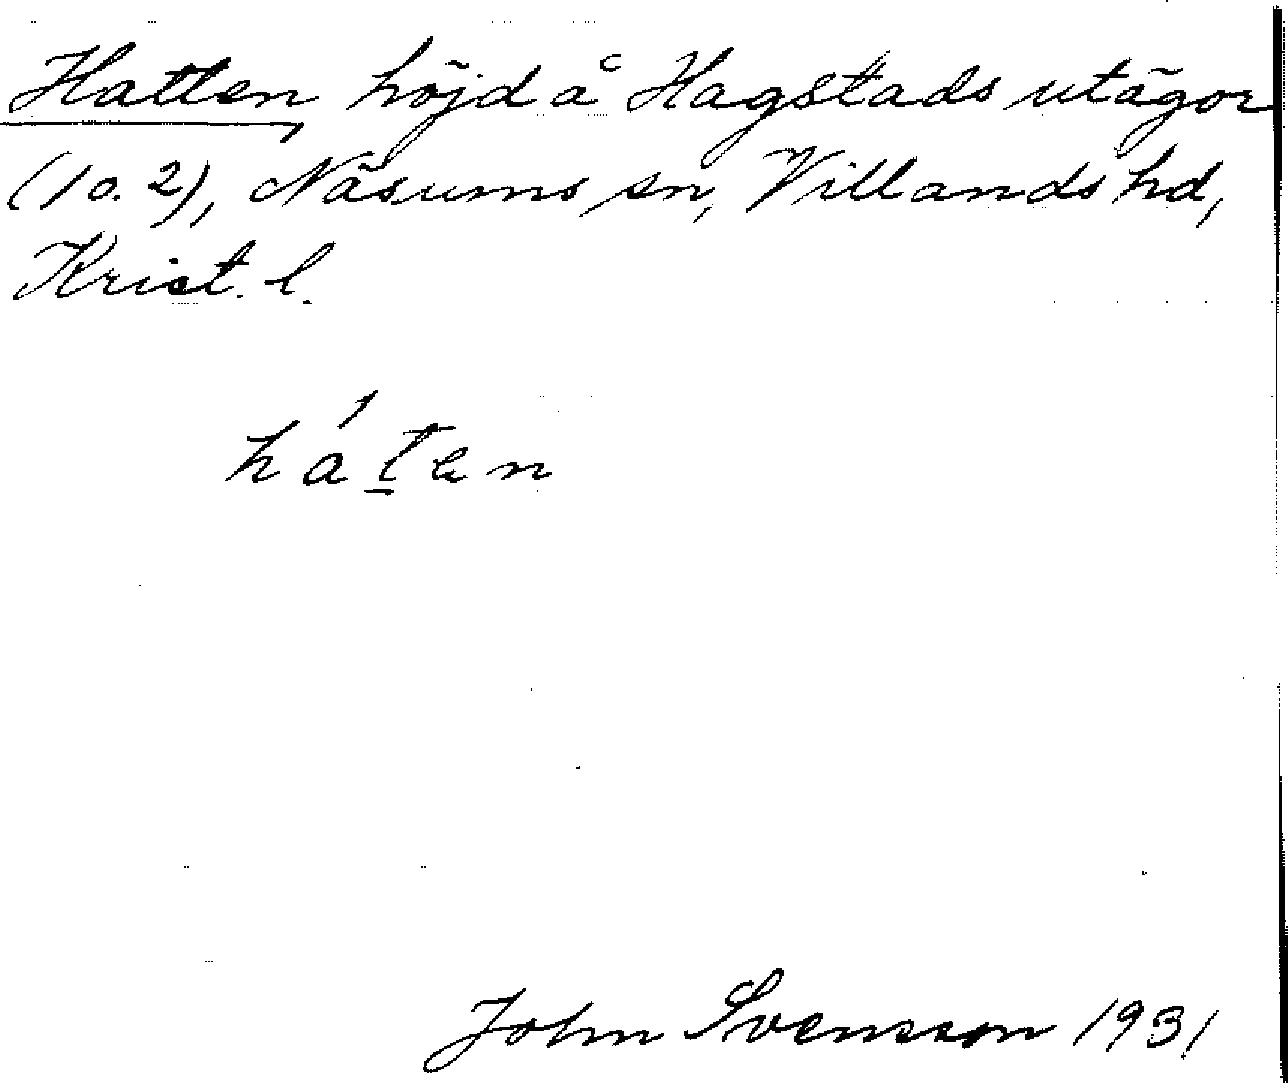 Hatten, höjd å Hagstads utägor
(10.2), Näsums sn, Villands hd,
Krist. l.
hát̲en
John Svensson 1931